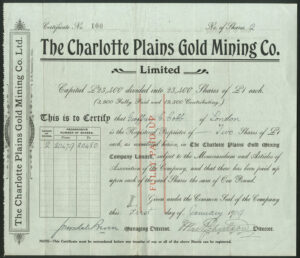 Certificate No. 100 No. of Shares 2
The Charlotte Plains Gold Mining Co.
Limited
Capital £25,500 divided into 25,500 Shares of £1 each.
This is to Certify that of London
is the Registered Proprietor of Two Shares of £1
each, as numbered herein, in The Charlotte Plains Gold Mining
Company Limited, subject to the Memorandum and Articles of
Association of the Company, and that there has been paid
up upon each of the said Shares the sum of One Pound
Given under the Common Seal of the Company
this First day of January 1909
Managing Director. Director.
NOTE.—This Certificate must be surrendered before any transfer of any or all of the above Shares can be registered.
The Charlotte Plains Gold Mining Co. Ltd.